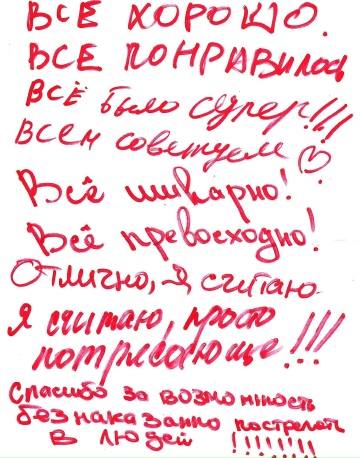 ВСЕ ХОРОШО.
ВСЕ ПОНРАВИЛОСЬ
ВСЁ было супер!!!
Всем советуем
Всё шикарно!
Всё превосходно!
Отлично, я считаю
Я считаю, просто
потрясающе!!!
Спасибо за возможность
безнаказанно пострелять
в людей !!!!!!!